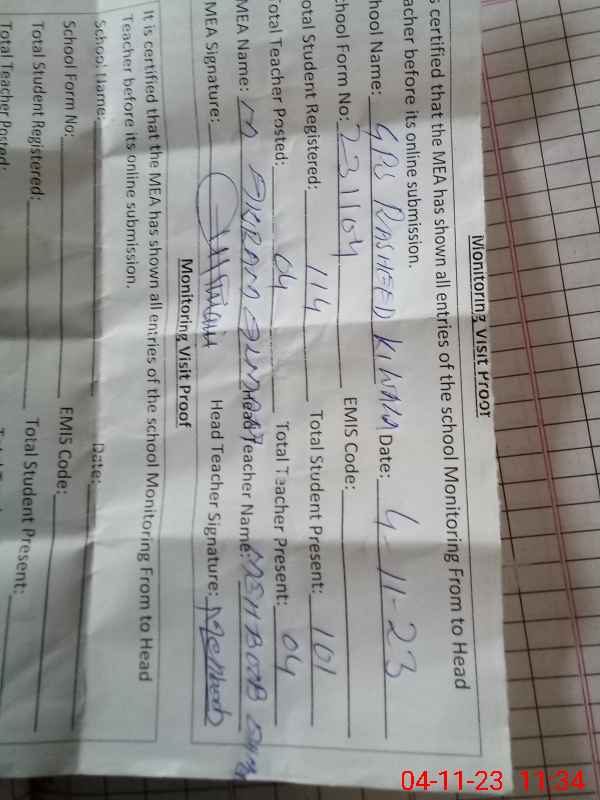 Monitoring Visit Proof
s certified that the MEA has shown all entries of the school Monitoring From to Head
acher before its online submission.
hool Name: GPS RASHEED KIWALA Date: 4-11-23
chool Form No: 2311104 EMIS Code:
otal Student Registered: 114 Total Student Present: 101
otal Teacher Posted: 04 Total Teacher Present: 04
MEA Name: M AKRAM Head Teacher Name: MEHBOOB
MEA Signature: Head Teacher Signature: Mehboob
Monitoring Visit Proof
It is certified that the MEA has shown all entries of the school Monitoring From to Head
Teacher before its online submission.
School Name: Date:
School Form No: EMIS Code:
Total Student Registered: Total Student Present:
Total Teacher Posted:
04-11-23 11:34